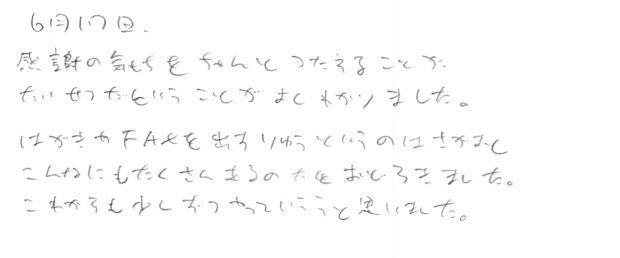 6月17日.
感謝の気もちをちゃんとつたえることが
たいせつだということがよくわかりました。
はがきやFAXを出すりゆうというのはさがすと
こんなにもたくさんあるのだとおどろきました。
これからも少しずつやっていこうと思いました。